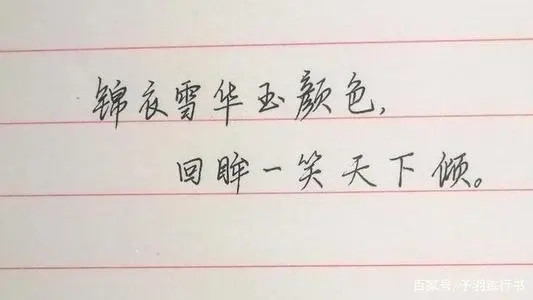 锦衣雪华玉颜色,
回眸一笑天下倾。
百家号/子羽练行书